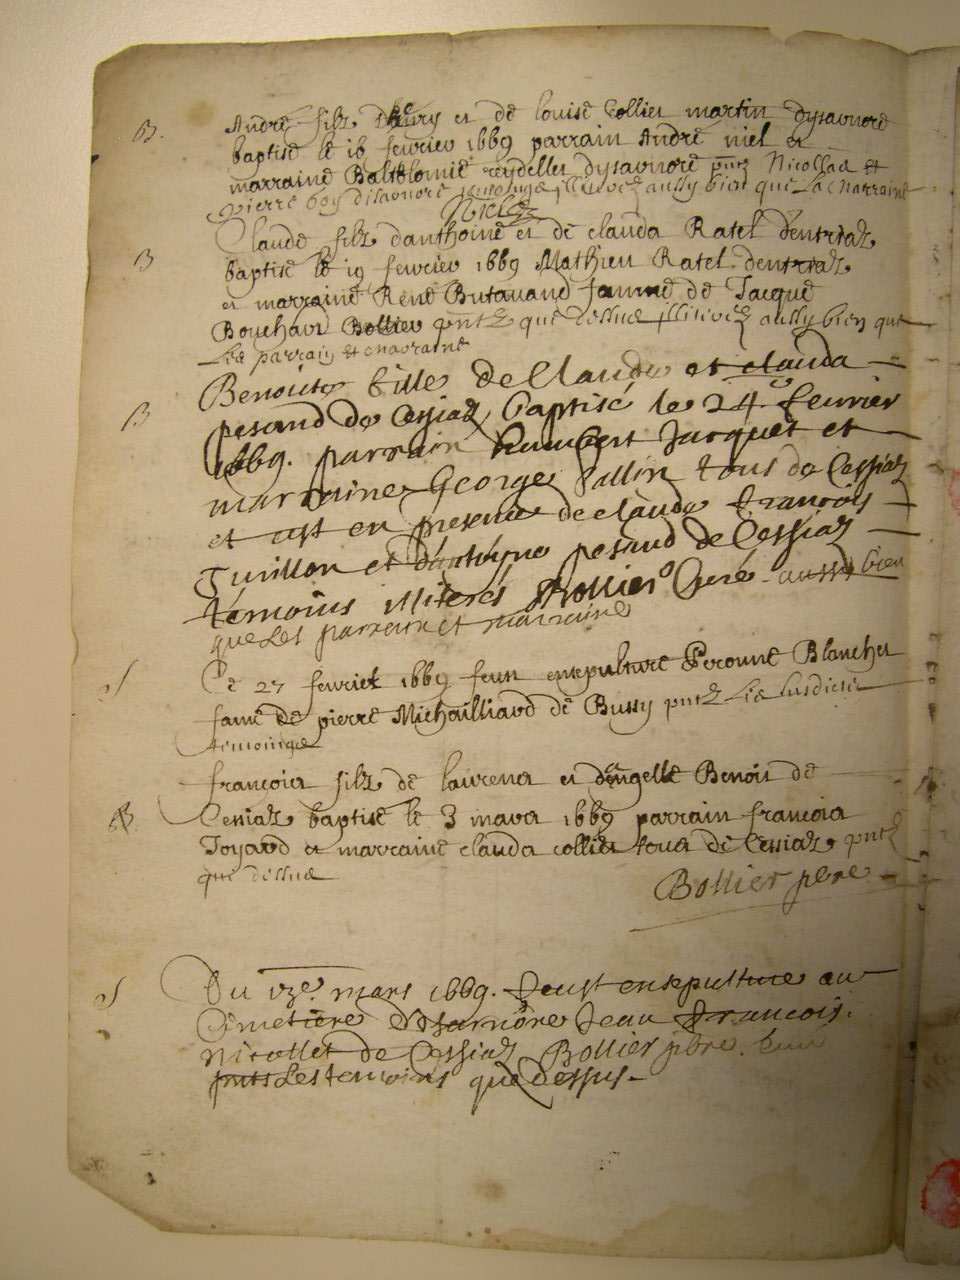 B. André filz d et de louise Collier martin dysavnore
baptisé le 16 fevrier 1669 parrain André niel et
marraine reydellet dysavnore pntz Nicollas et
pierre boy disavnore aussy bien que la marraine
B Claude filz danthoine et de clauda Ratel dentriaz
baptisé le 19 fevrier 1669 Mathieu Ratel dentriaz
et marraine René Butavand famme de Jacque
Bouchard Bollier pntz que dessus illitérés aussy bien que
les parrain et marraine
B Benoiste fille de Claude et clauda
pesand de Cessiaz baptisé le 24e fevrier
1669. parrain humbert Jacquet et
marraine George Pallin tous de Cessiaz
et c'est en presence de claude francois
Jurillon et d'anthoyne pesand de Cessiaz
témoins illiterés Bollier Curé aussy bien
que les parrain et marraine
S Ce 27 fevrier 1669 feut ensepulture Peronne Blanchet
fame de pierre Michailliard de Bussy pntz les susdicts
temoings
B francois filz de laurens et dangelle Benoit de
Cessiaz baptisé le 3 mars 1669 parrain francois
Joyard et marraine clauda collier tous de Cessiaz pntz
que dessus
Bollier pbre
S Du 12e. mars 1669. feust ensepulture au
Cimetiere d'Isarnore Jean francois
Nicollet de Cessiaz Bollier pbre.
pnts les temoins que dessus.